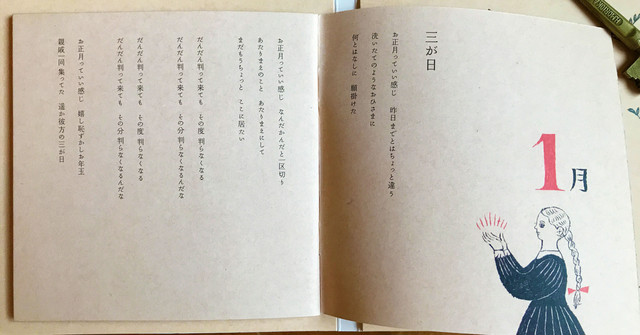 1月
三が日
お正月っていい感じ 昨日までとはちょっと違う
洗いたてのようなおひさまに
何とはなしに 願掛けた
お正月っていい感じ なんだかんだと一区切り
あたりまえのこと あたりまえにして
まだもうちょっと ここに居たい
だんだん判って来ても その度 判らなくなる
だんだん判って来ても その分 判らなくなるんだな
だんだん判って来ても その度 判らなくなる
だんだん判って来ても その分 判らなくなるんだな
お正月っていい感じ 嬉し恥ずかしお年玉
親戚一同集ってた 遥か彼方の三が日